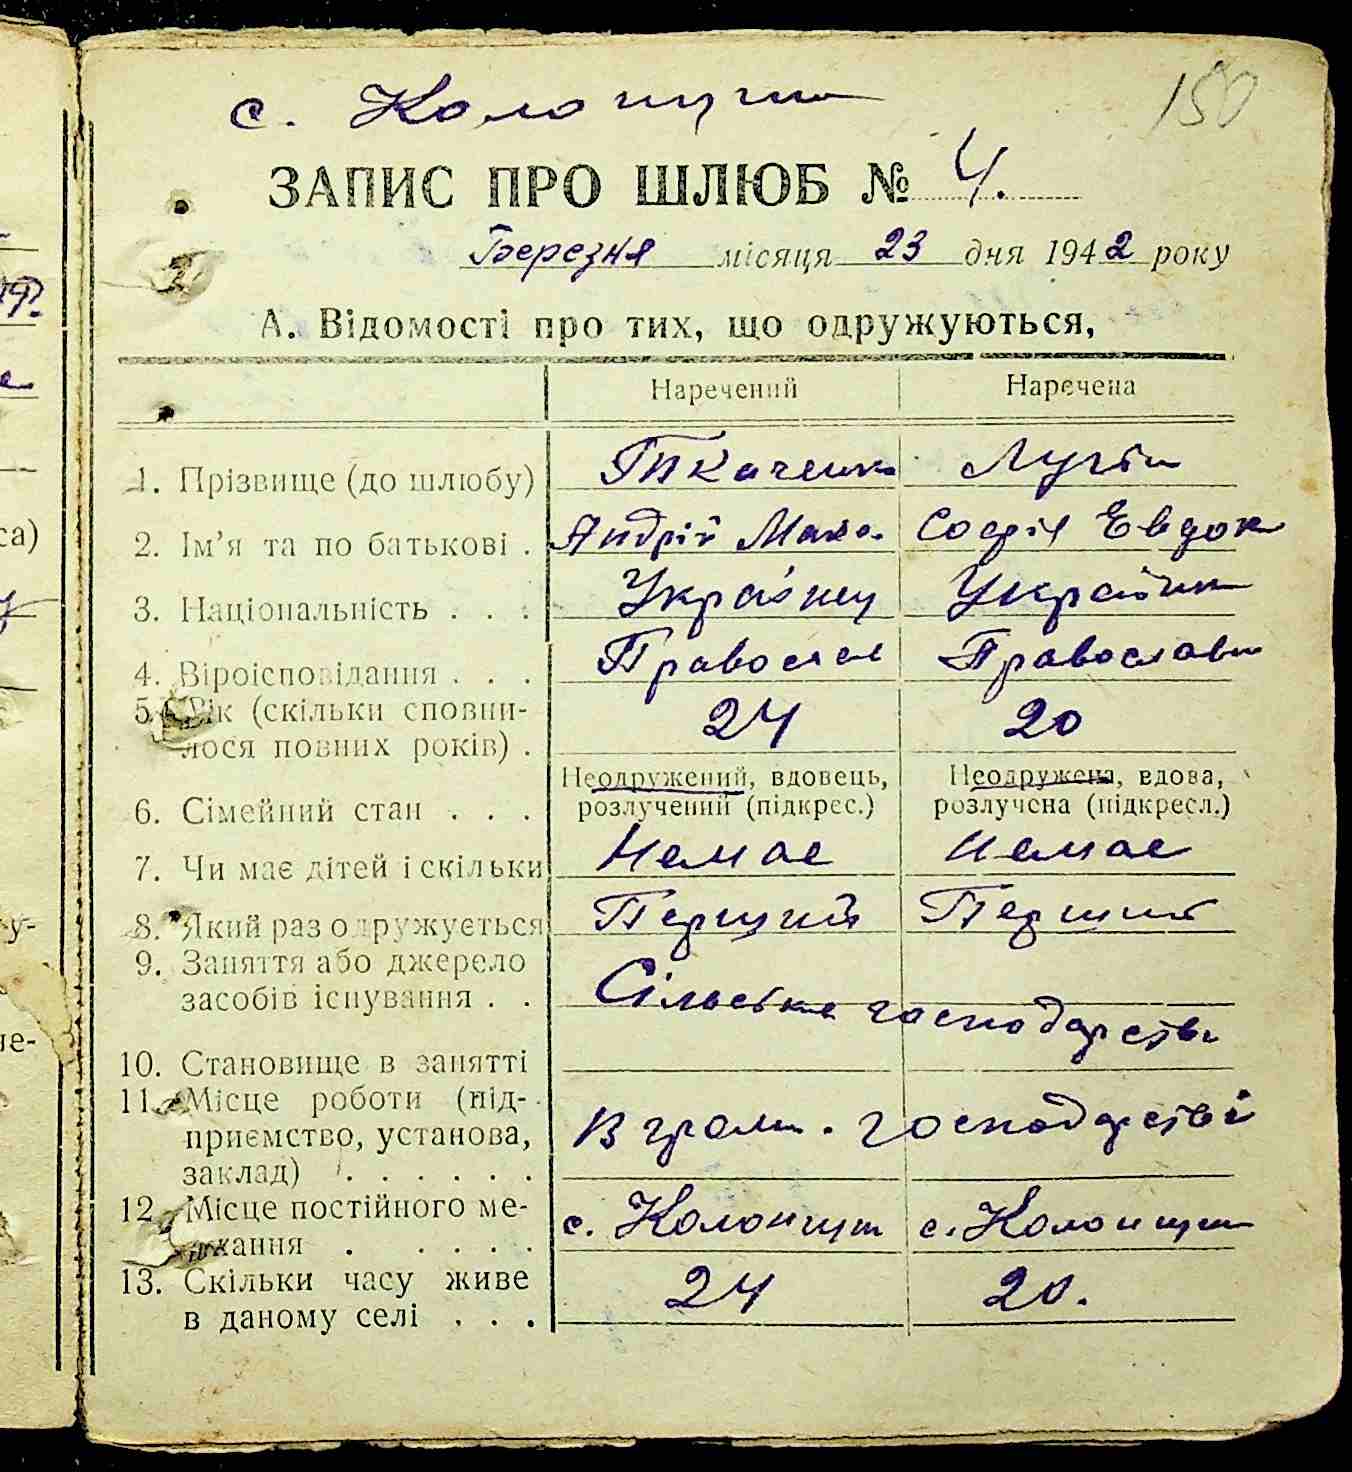 150
с. Колонщи
ЗАПИС ПРО ШЛЮБ № 4.
Березня місяця 23 дня 1942 року
А. Відомості про тих, що одружуються,
Наречений Наречена
1. Прізвище (до шлюбу) Ткаченко
2. Ім’я та по батькові . Андрій Мака. Софія Евдок
3. Національність . . . Українец Українк
4. Віроісповідання . . . Православ Православн
5. Вік (скільки сповни-
лося повних років) . 24 20
6. Сімейний стан . . . Неодружений, вдовець, розлучений (підкрес.) Неодружена, вдова, розлучена (підкресл.)
7. Чи має дітей і скільки Немає Немає
8. Який раз одружується Перший Перший
9. Заняття або джерело
засобів існування . . Сільське господарство
10. Становище в занятті
11. Місце роботи (під-
приємство, установа, В гром. господарстві
заклад) . . . . . .
12. Місце постійного ме-
шкання . . . . . с. Колонщи с. Колонщи
13. Скільки часу живе
в даному селі . . . 24 20.